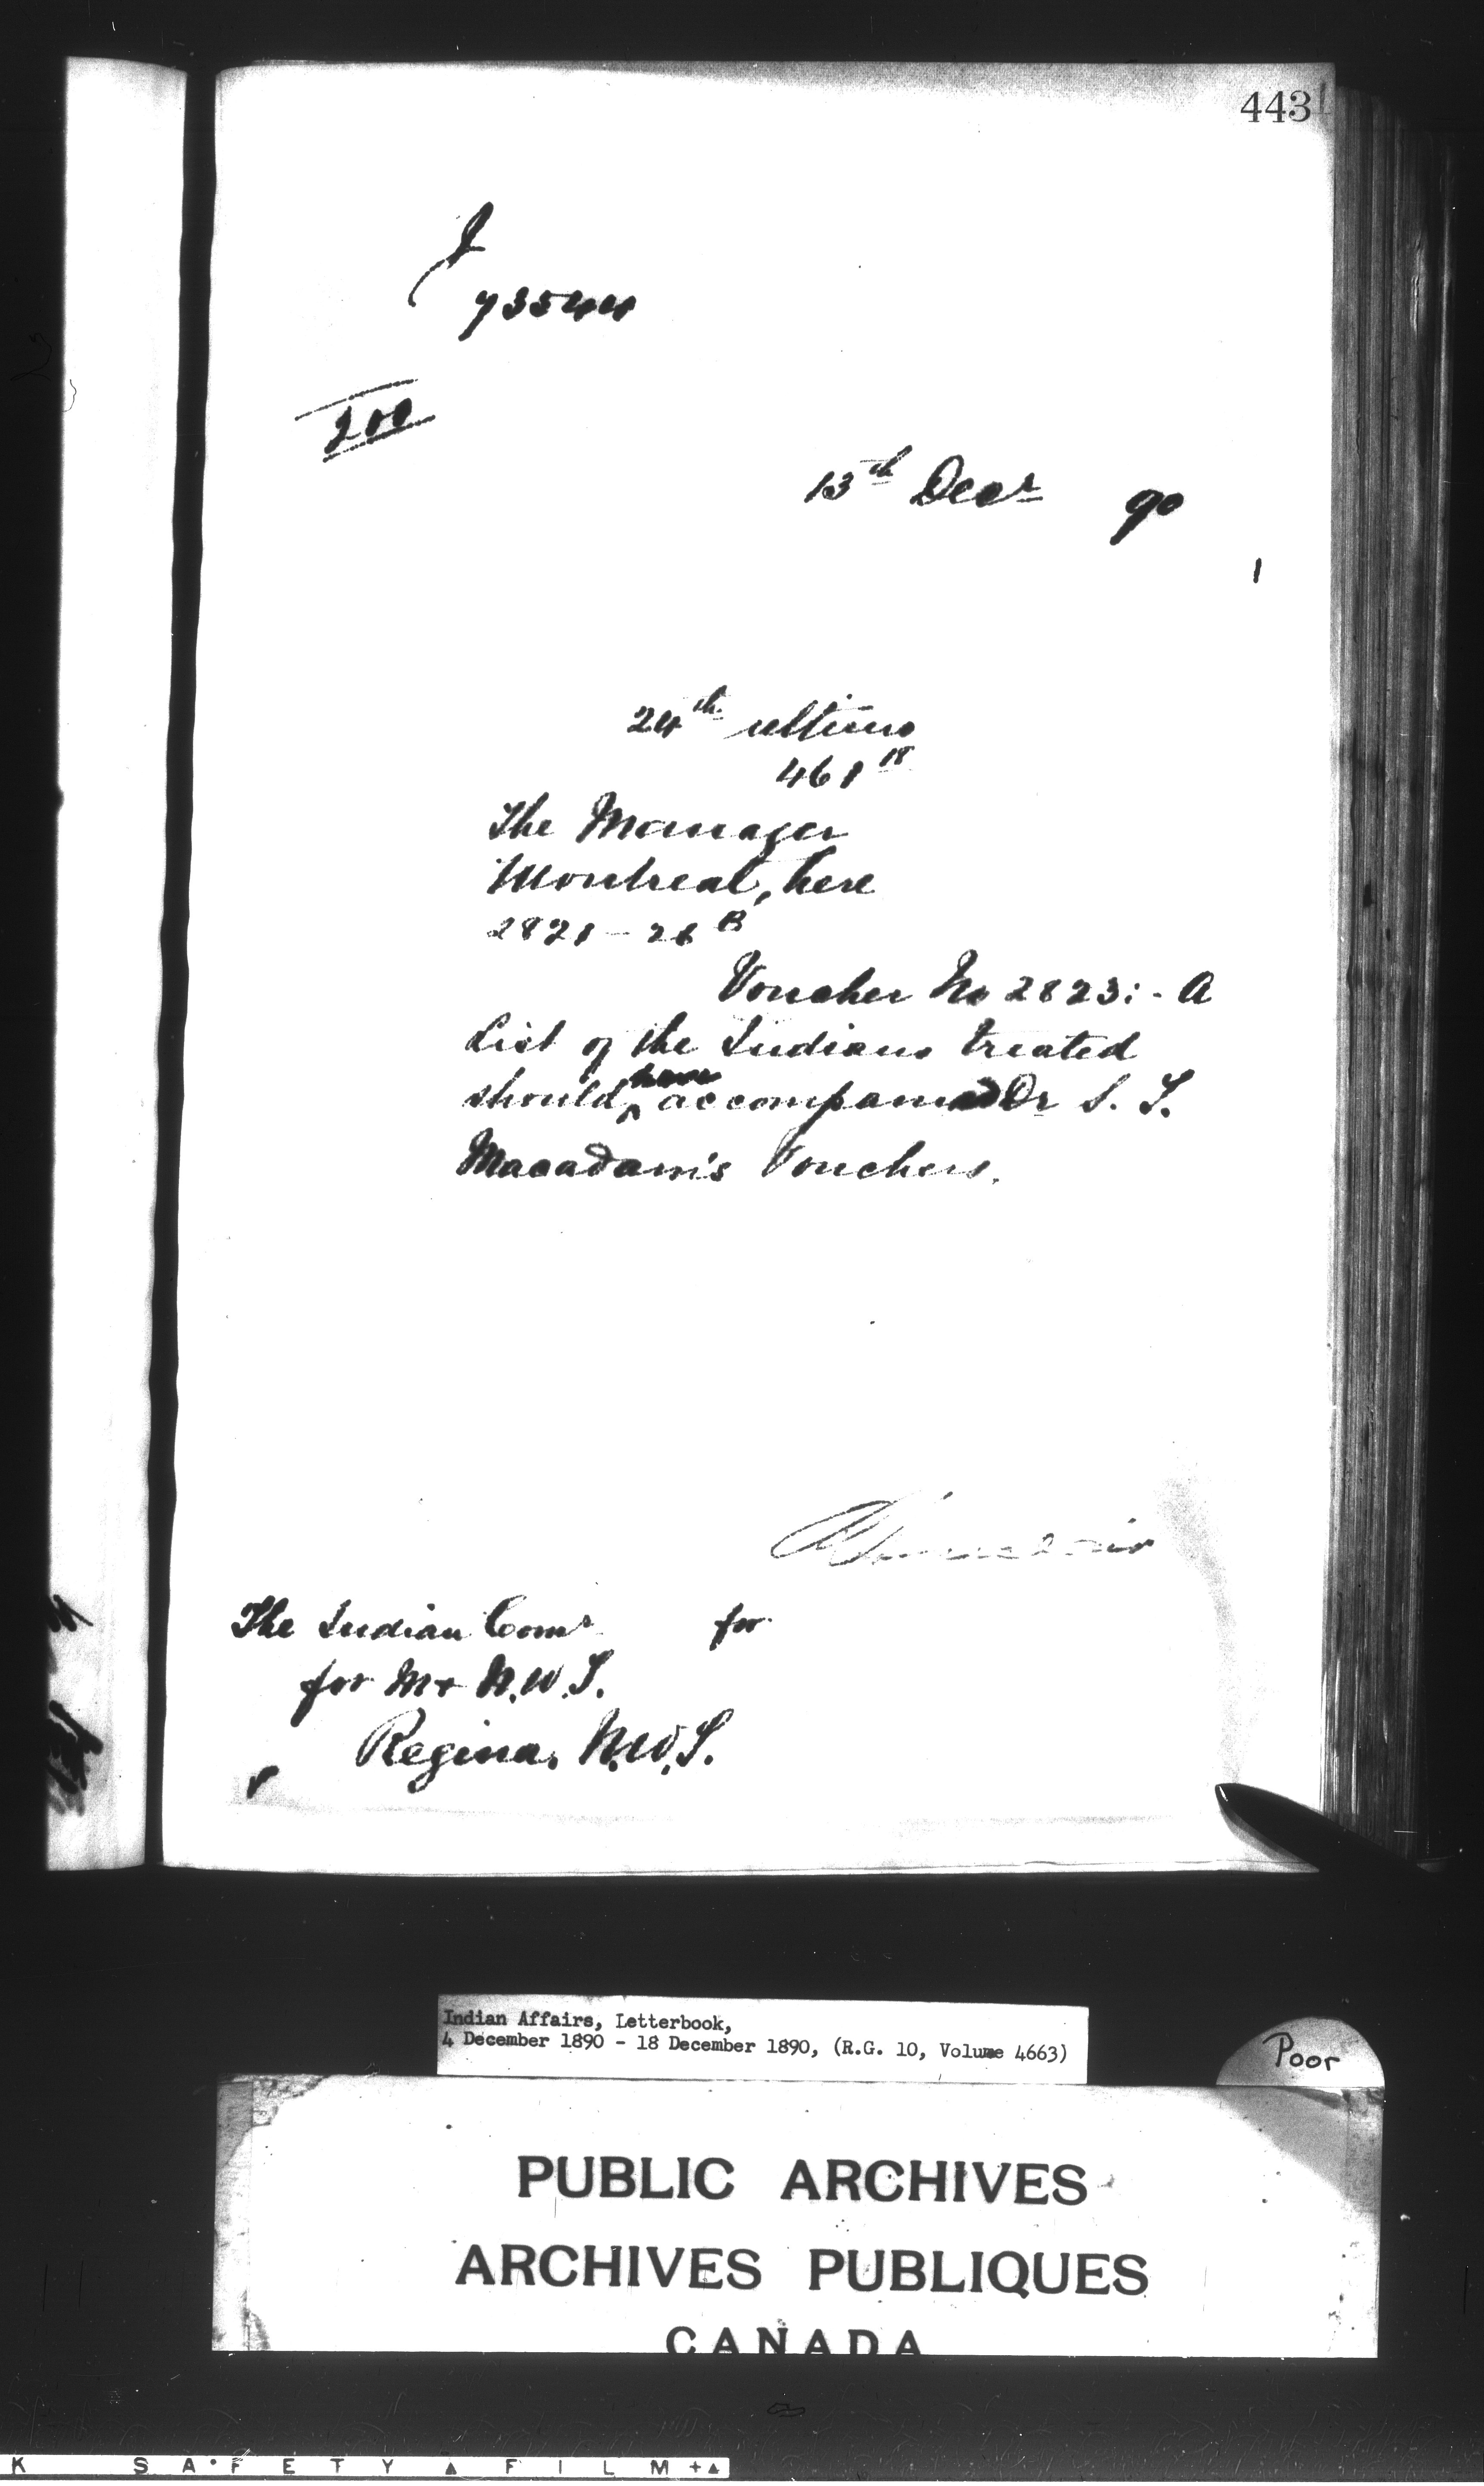 443
73544
200
13th Decr 90
24th ultimo
461 18
The Manager
Montreal, here
2821-26 B
Voucher No 2823:- A
List of the Indians treated
should have accompanied Dr S. T.
Macadam's Vouchers.
The Indian Comr for
for M & N.W.T.
Regina, N.W.T.
Indian Affairs, Letterbook,
4 December 1890 - 18 December 1890, (R.G. 10, Volume 4663)
Poor
PUBLIC ARCHIVES
ARCHIVES PUBLIQUES
CANADA
K SAFETY ▲ FILM +▲